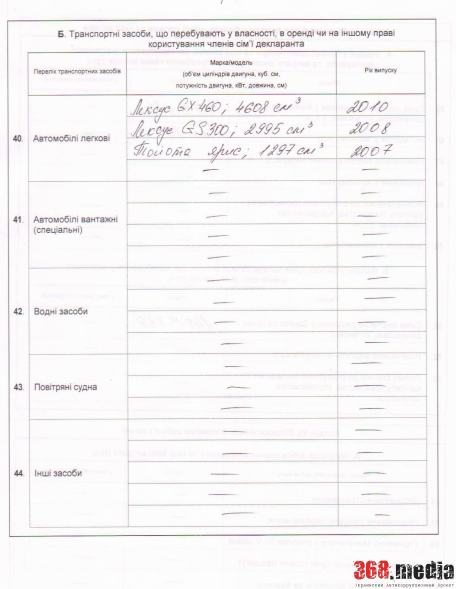 Б. Транспортні засоби, що перебувають у власності, в оренді чи на іншому праві
користування членів сім'ї декларанта
Перелік транспортних засобів
Марка/модель
(об'єм циліндрів двигуна, куб. см,
потужність двигуна, кВт, довжина, см)
Рік випуску
40. Автомобілі легкові
Лексус GX460; 4608 см³ 2010
Лексус GS300; 2995 см³ 2008
Тойота ярис; 1297 см³ 2007
— —
41. Автомобілі вантажні
(спеціальні)
— —
— —
— —
— —
42. Водні засоби
— —
— —
— —
— —
43. Повітряні судна
— —
— —
— —
44. Інші засоби
— —
— —
— —
— —
— —
368.media
Украинский Антикоррупционный Проект